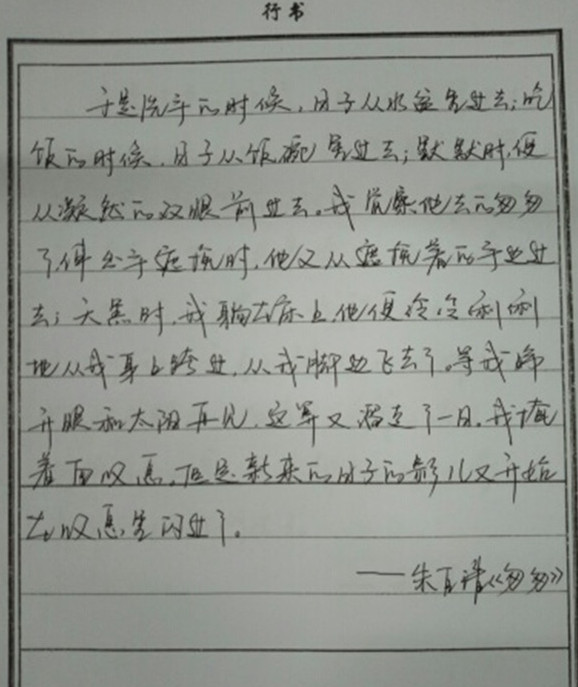 行书
于是洗手的时候，日子从水盆里过去；吃
饭的时候，日子从饭碗里过去；默默时，便
从凝然的双眼前过去。我觉察他去的匆匆
了，伸出手遮挽时，他又从遮挽着的手边过
去；天黑时，我躺在床上，他便伶伶俐俐
地从我身上跨过，从我脚边飞去了。等我睁
开眼和太阳再见，这算又溜走了一日。我掩
着面叹息。但是新来的日子的影儿又开始
在叹息里闪过了。
——朱自清《匆匆》